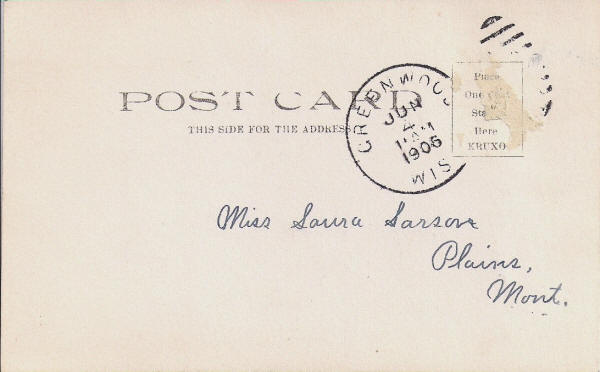 POST CARD
THIS SIDE FOR THE ADDRESS
GREENWOOD
JUN
4
1906
WIS
Place
One Cent
Stamp
Here
KRUXO
Miss Laura Larson
Plains,
Mont.